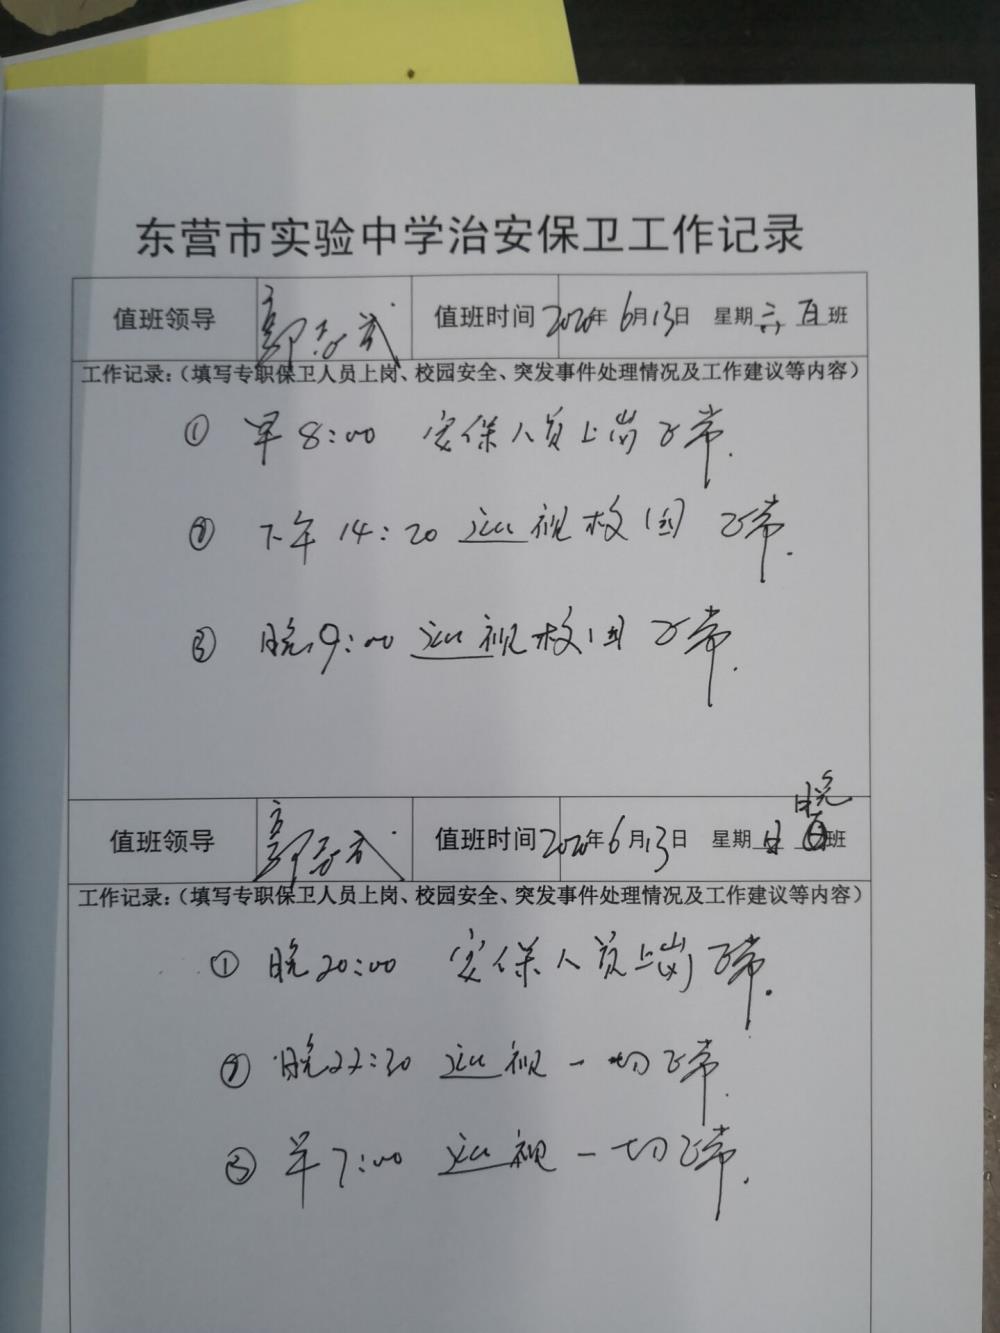 东营市实验中学治安保卫工作记录
值班领导 郭志武 值班时间 2020年 6月13日 星期 六 白班
工作记录：（填写专职保卫人员上岗、校园安全、突发事件处理情况及工作建议等内容）
① 早8:00 安保人员上岗正常.
② 下午14:20 巡视校园 正常.
③ 晚9:00 巡视校园正常.
值班领导 郭志武 值班时间 2020年 6月13日 星期 日 晚班
工作记录：（填写专职保卫人员上岗、校园安全、突发事件处理情况及工作建议等内容）
① 晚20:00 安保人员上岗正常.
② 晚22:30 巡视一切正常.
③ 早7:00 巡视一切正常.